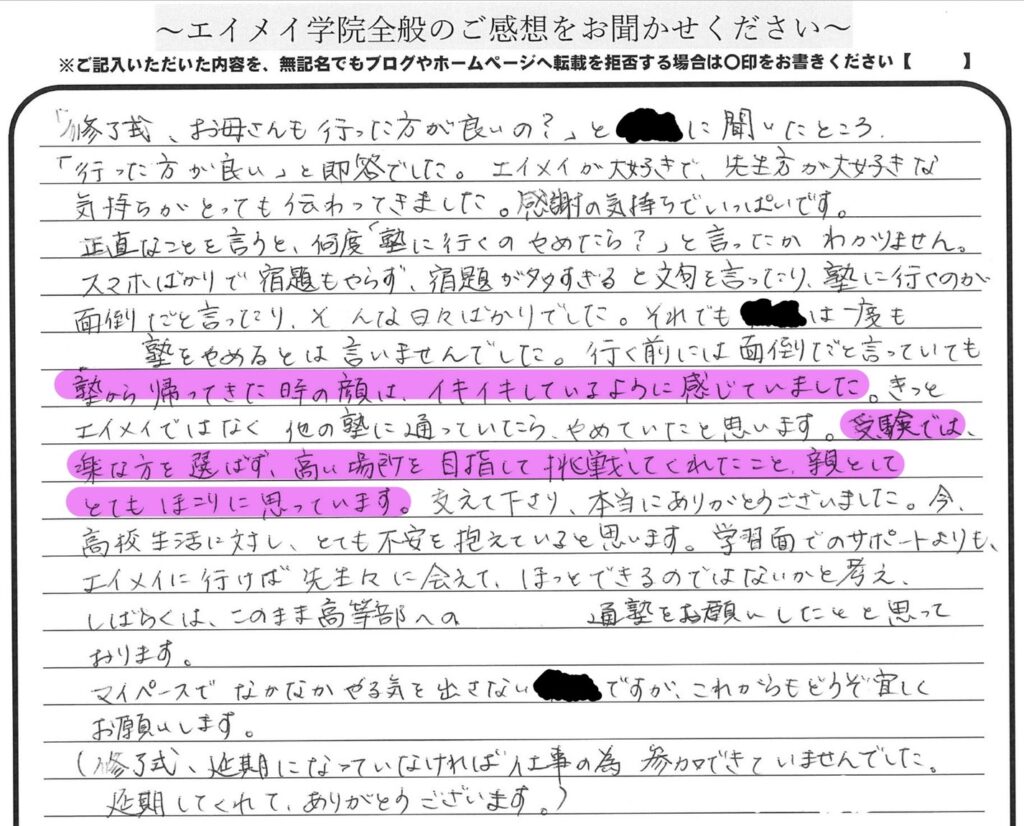 ～エイメイ学院全般のご感想をお聞かせください～
※ご記入いただいた内容を、無記名でもブログやホームページへ転載を拒否する場合は〇印をお書きください【　　】
「修了式、お母さんも行った方が良いの？」と　　に聞いたところ、
「行った方が良い」と即答でした。エイメイが大好きで、先生方が大好きな
気持ちがとっても伝わってきました。感謝の気持ちでいっぱいです。
正直なことを言うと、何度「塾に行くのやめたら？」と言ったか わかりません。
スマホばかりで宿題もやらず、宿題が多すぎると文句を言ったり、塾に行くのが
面倒だと言ったり、そんな日々ばかりでした。それでも　　は一度も
塾をやめるとは言いませんでした。行く前には面倒だと言っていても
塾から帰ってきた時の顔は、イキイキしているように感じていました。きっと
エイメイではなく他の塾に通っていたら、やめていたと思います。受験では、
楽な方を選ばず、高い場所を目指して挑戦してくれたこと、親として
とてもほこりに思っています。支えて下さり、本当にありがとうございました。今、
高校生活に対し、とても不安を抱えていると思います。学習面でのサポートよりも、
エイメイに行けば先生々に会えて、ほっとできるのではないかと考え、
しばらくは、このまま高等部への　　通塾をお願いしたいと思って
おります。
マイペースでなかなかやる気を出さない　　ですが、これからもどうぞ宜しく
お願いします。
（修了式、延期になっていなければ仕事の為 参加できていませんでした。
延期してくれて、ありがとうございます。）